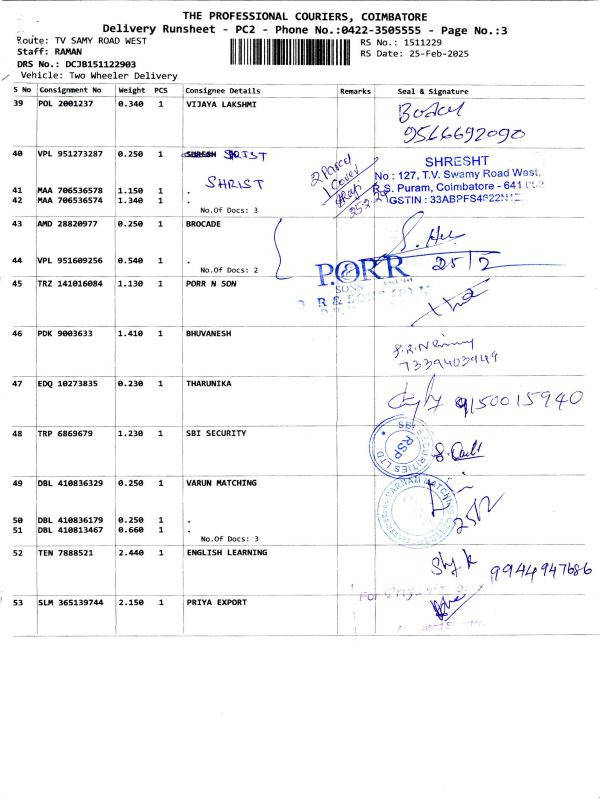 THE PROFESSIONAL COURIERS, COIMBATORE
Delivery Runsheet - PC2 - Phone No.:0422-3505555 - Page No.:3
Route: TV SAMY ROAD WEST
RS No.: 1511229
Staff: RAMAN
RS Date: 25-Feb-2025
DRS No.: DCJB151122903
Vehicle: Two Wheeler Delivery
S No Consignment No Weight PCS Consignee Details Remarks Seal & Signature
39 POL 2001237 0.340 1 VIJAYA LAKSHMI
9566692090
40 VPL 951273287 0.250 1 SHRIST
SHRIST
2 Parcel
1 Cover
SHRESHT
No : 127, T.V. Swamy Road West,
R.S. Puram, Coimbatore - 641 002
GSTIN : 33ABPFS4622N1Z
41 MAA 706536578 1.150 1 .
42 MAA 706536574 1.340 1 .
No.Of Docs: 3
43 AMD 28820977 0.250 1 BROCADE
25/2
44 VPL 951609256 0.540 1 .
No.Of Docs: 2
P.ORR
SONS
45 TRZ 141016084 1.130 1 PORR N SON
46 PDK 9003633 1.410 1 BHUVANESH
7339403949
47 EDQ 10273835 0.230 1 THARUNIKA
9150015940
48 TRP 6869679 1.230 1 SBI SECURITY
SBI SECURITIES LTD
RSP
49 DBL 410836329 0.250 1 VARUN MATCHING
25/2
50 DBL 410836179 0.250 1 .
51 DBL 410813467 0.660 1 .
No.Of Docs: 3
52 TEN 7888521 2.440 1 ENGLISH LEARNING
9944947686
53 SLM 365139744 2.150 1 PRIYA EXPORT